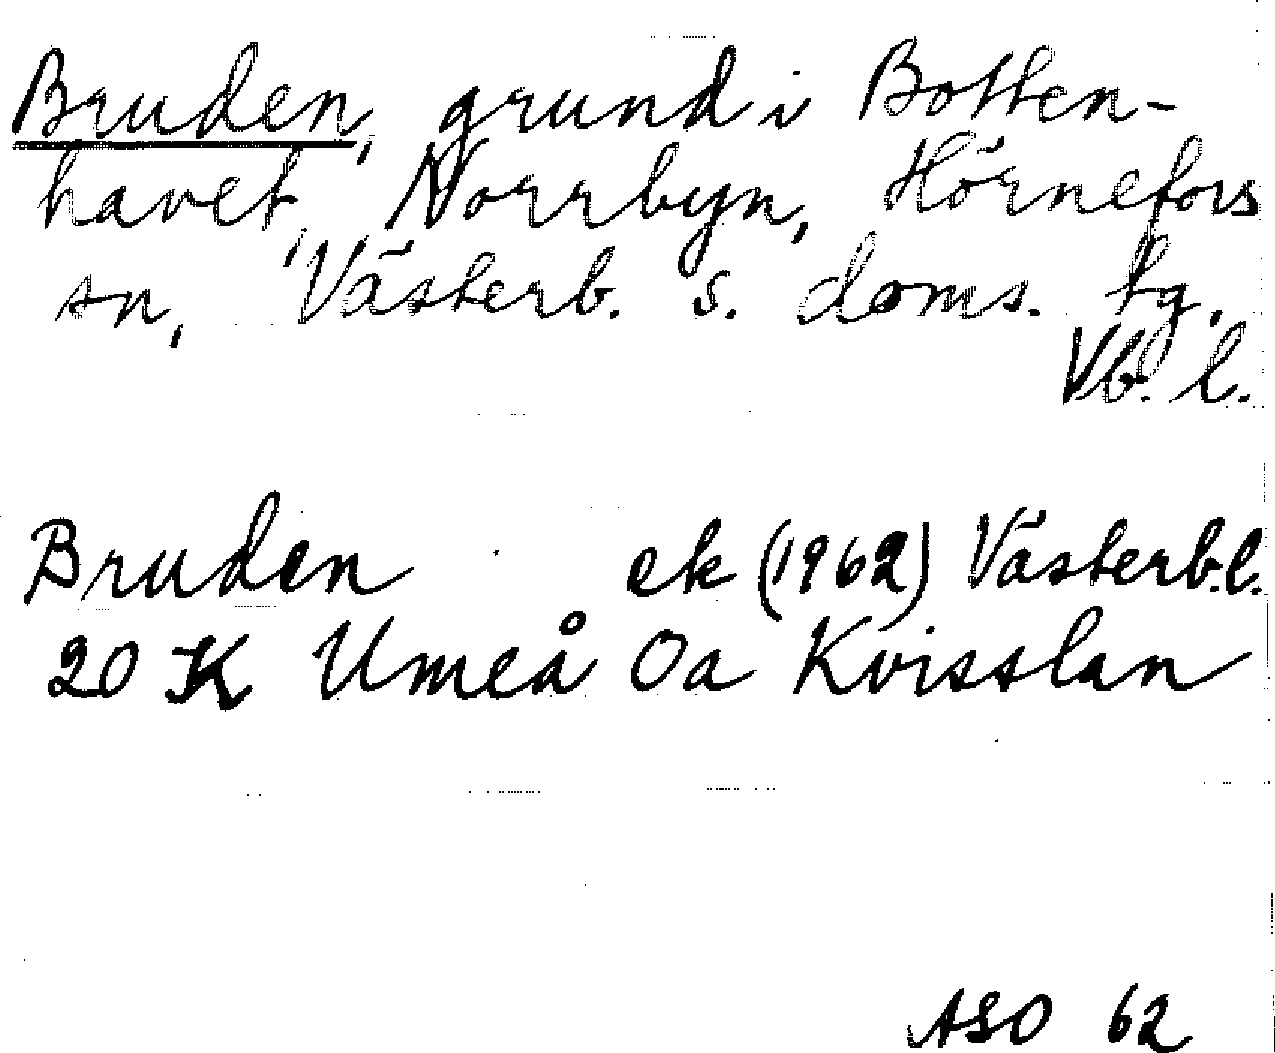 Bruden, grund i Botten-
havet, Norrbyn, Hörnefors
sn, Västerb. s. doms. tg.
Vb. l.
Bruden ek (1962) Västerb.l.
20 K Umeå Oa Kvisslan
ASO 62